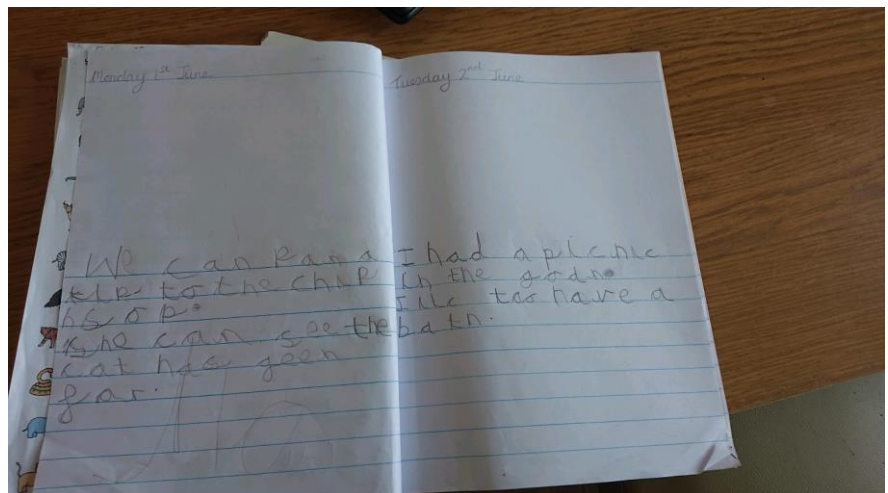 Monday 1st June
We can Rana
tip to the chip
hsop.
she can see the
cat has geen
far.
Tuesday 2nd June
I had a picnic
in the godn.
I lic too have a
bath.